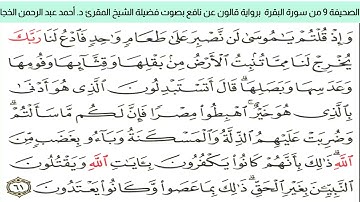 الصحيفة 9 من سورة البقرة برواية قالون عن نافع بصوت فضيلة الشيخ المقرئ د. أحمد عبد الرحمن الخجا
وَإِذْ قُلْتُمْ يَٰمُوسَىٰ لَن نَّصْبِرَ عَلَىٰ طَعَامٍ وَٰحِدٍ فَادْعُ لَنَا رَبَّكَ
يُخْرِجْ لَنَا مِمَّا تُنۢبِتُ الْأَرْضُ مِنۢ بَقْلِهَا وَقِثَّآئِهَا وَفُومِهَا
وَعَدَسِهَا وَبَصَلِهَا قَالَ أَتَسْتَبْدِلُونَ الَّذِي هُوَ أَدْنَىٰ
بِالَّذِي هُوَ خَيْرٌ اهْبِطُوا مِصْرًا فَإِنَّ لَكُم مَّا سَأَلْتُمْ
وَضُرِبَتْ عَلَيْهِمُ الذِّلَّةُ وَالْمَسْكَنَةُ وَبَآءُو بِغَضَبٍ مِّنَ
اللَّهِ ذَٰلِكَ بِأَنَّهُمْ كَانُوا يَكْفُرُونَ بِـَٔايَٰتِ اللَّهِ وَيَقْتُلُونَ
النَّبِيٓـِٕينَ بِغَيْرِ الْحَقِّ ذَٰلِكَ بِمَا عَصَوا وَّكَانُوا يَعْتَدُونَ ٦١